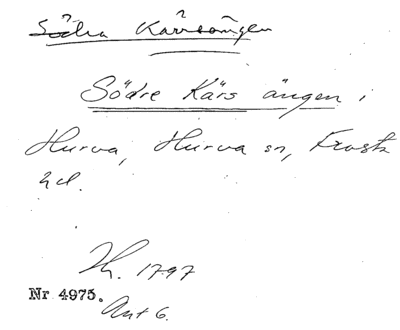 Södra Kärrsängen
Södre Kärs ängen i
Hurva, Hurva sn, Frosta
hd.
Th. 1797
Nr 4975.
Akt 6.